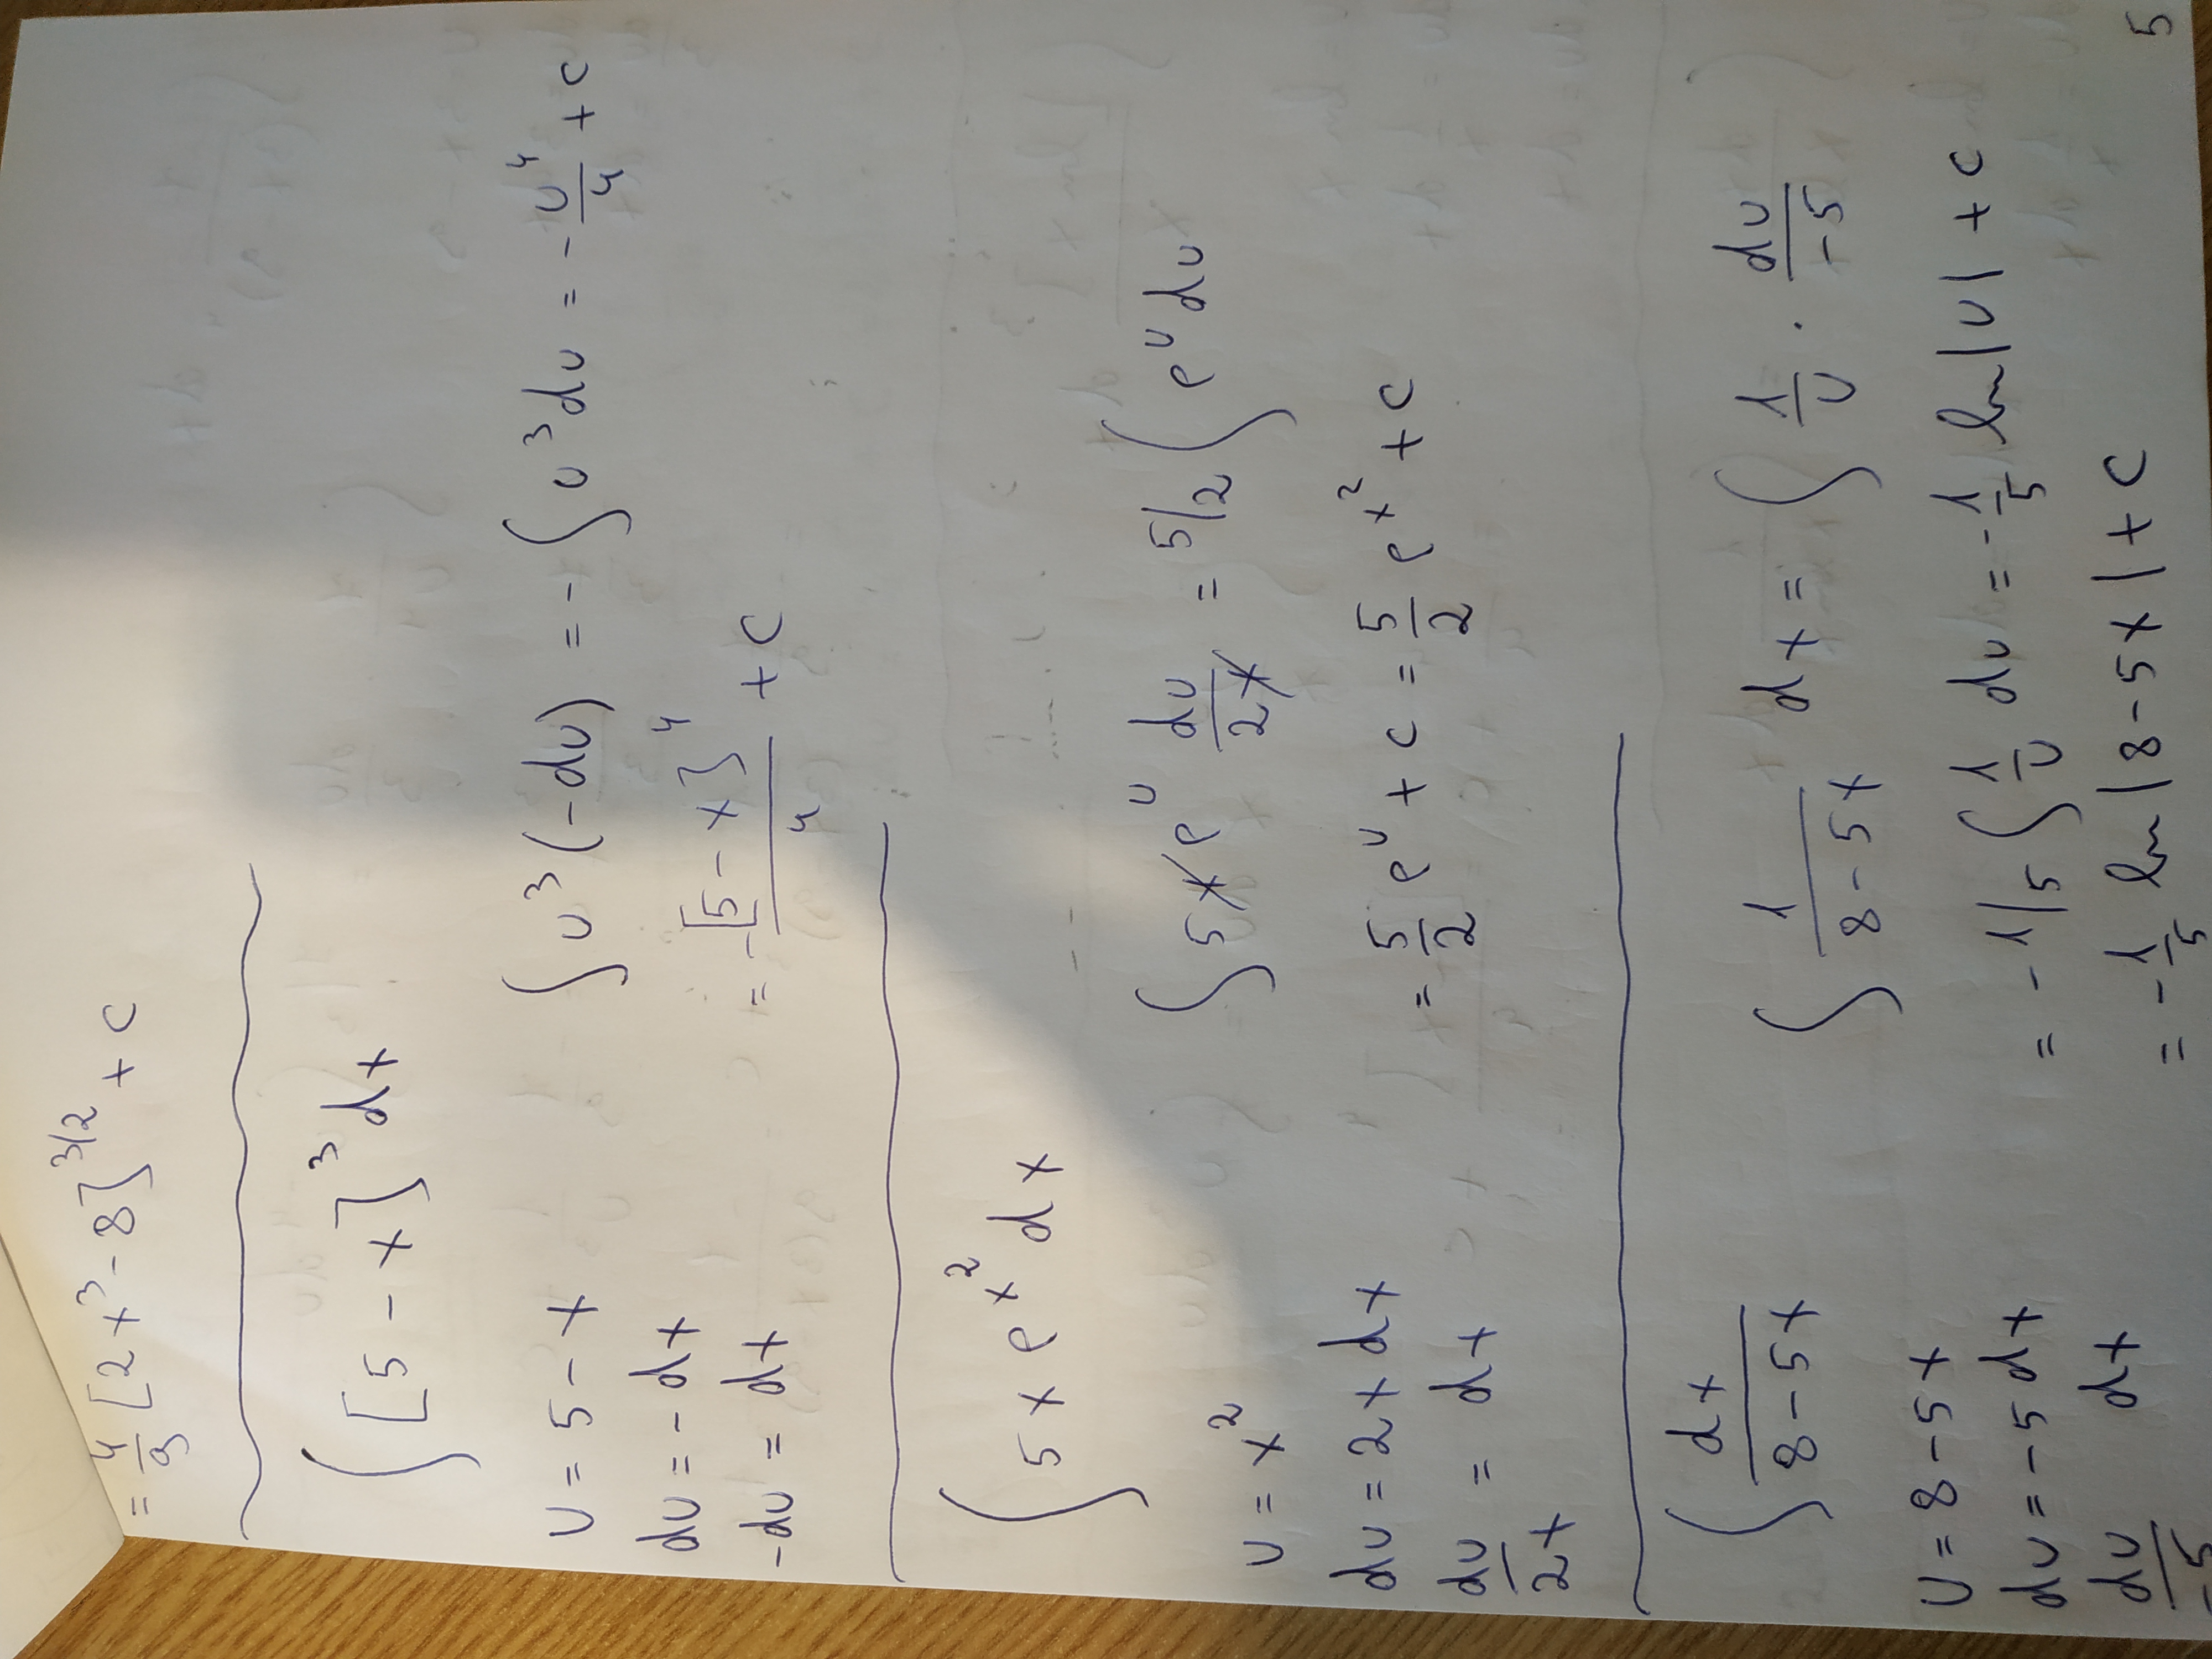 = 4/9 [2x³ - 8]^{3/2} + c
∫ [5 - x]³ dx
u = 5 - x
du = - dx
-du = dx
∫ u³ (-du) = - ∫ u³ du = - u⁴/4 + c
= -[5 - x]⁴/4 + c
∫ 5x e^{x²} dx
u = x²
du = 2x dx
du/2x = dx
∫ 5x e^u du/2x = 5/2 ∫ e^u du
= 5/2 e^u + c = 5/2 e^{x²} + c
∫ dx/(8 - 5x)
u = 8 - 5x
du = -5 dx
du/-5 dx
∫ 1/(8 - 5x) dx = ∫ 1/u · du/-5
= -1/5 ∫ 1/u du = -1/5 ln|u| + c
= -1/5 ln|8 - 5x| + c
5